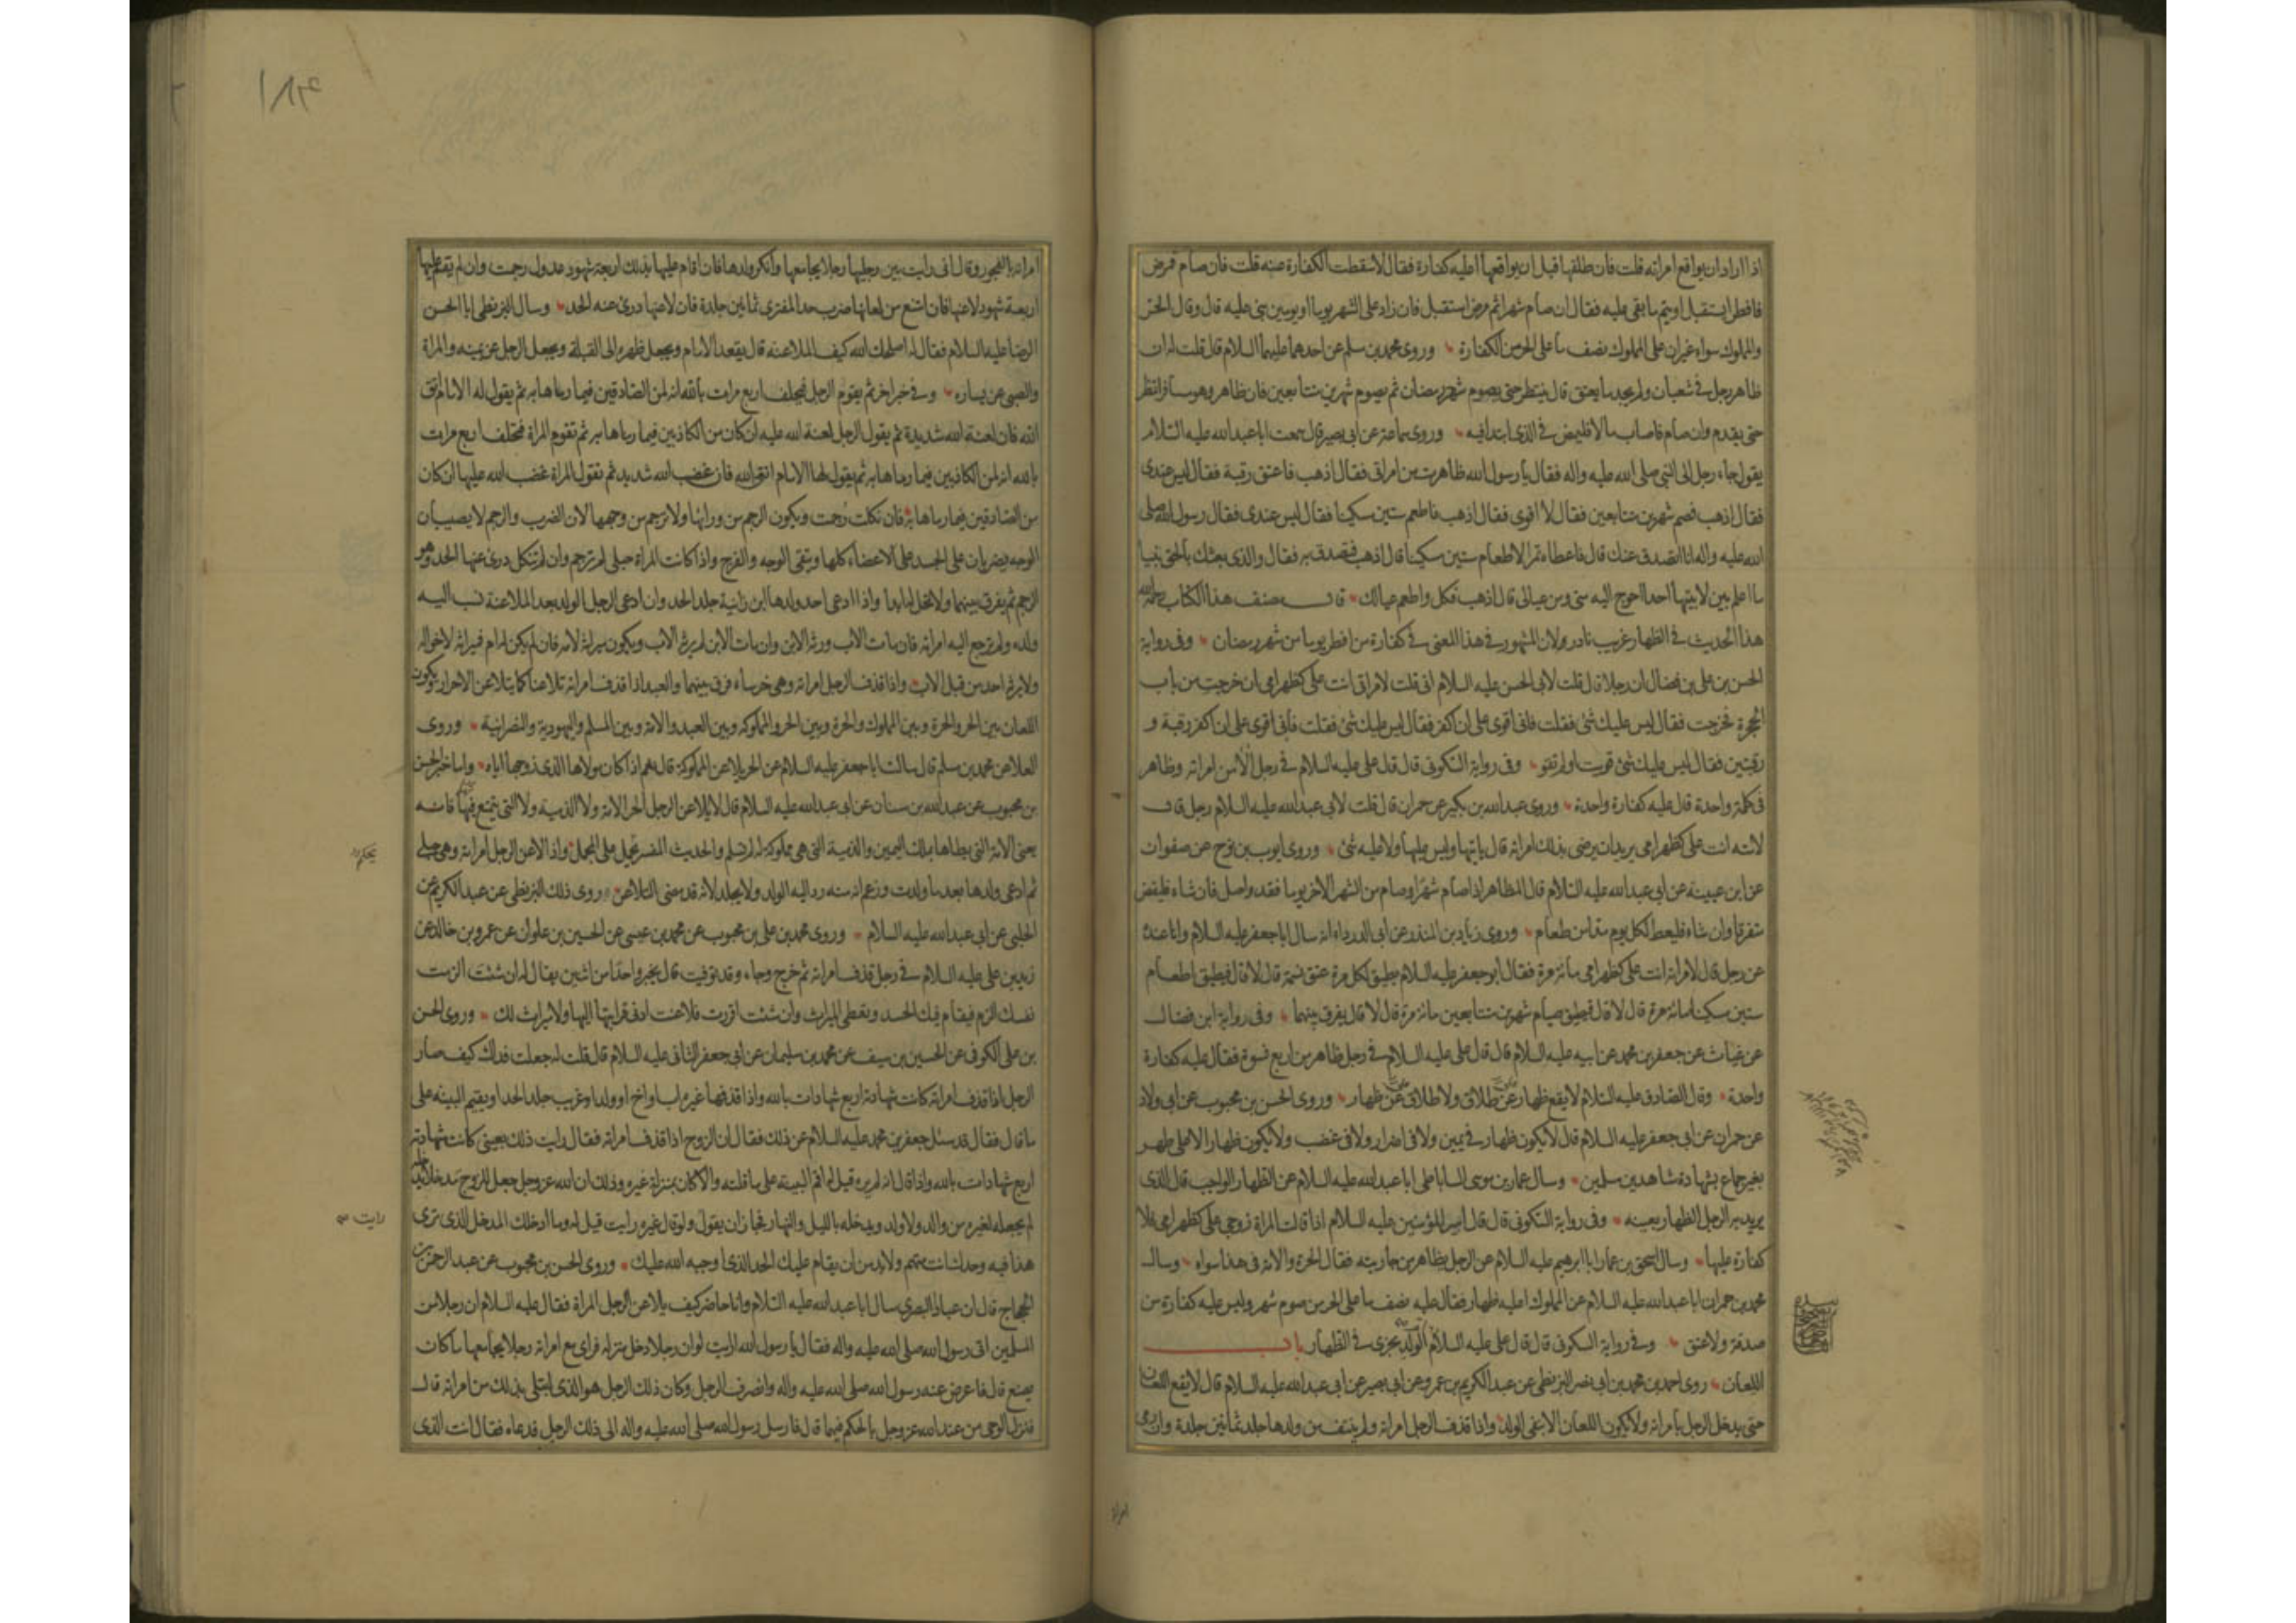 اذا اراد ان يواقع امراته قلت فان طلقها قبل ان يواقعها اعليه كفارة فقال لا سقطت الكفارة عنه قلت فان صام فمرض
فافطر ايستقبل او يتم ما بقى عليه فقال ان صام شهرا ثم مرض استقبل فان زاد على الشهر يوما او يومين بنى عليه قال وقال الحر
والمملوك سواء غير ان على المملوك نصف ما على الحر من الكفارة وروى محمد بن مسلم عن احدهما عليهما السلام قال قلت له ان
ظاهر رجل فى شعبان ولم يجد ما يعتق قال ينتظر حتى يصوم شهر رمضان ثم يصوم شهرين متتابعين فان ظاهر وهو مسافر انتظر
حتى يقدم وان صام فاصاب مالا فليمض فى الذى ابتدا فيه وروى سماعة عن ابى بصير قال سمعت ابا عبد الله عليه السلام
يقول جاء رجل الى النبى صلى الله عليه واله فقال يا رسول الله ظاهرت من امراتى فقال اذهب فاعتق رقبة فقال ليس عندى
فقال اذهب فصم شهرين متتابعين فقال لا اقوى فقال اذهب فاطعم ستين مسكينا فقال ليس عندى فقال رسول الله صلى
الله عليه واله انا اتصدق عنك قال فاعطاه تمرا لاطعام ستين مسكينا قال اذهب فتصدق به فقال والذى بعثك بالحق نبيا
ما اعلم بين لابتيها احدا احوج اليه منى ومن عيالى قال اذهب فكل واطعم عيالك قال مصنف هذا الكتاب رحمه الله
هذا الحديث فى الظهار غريب نادر ولان المشهور فى هذا المعنى فى كفارة من افطر يوما من شهر رمضان وفى رواية
الحسن بن على بن فضال ان رجلا قال قلت لابى الحسن عليه السلام انى قلت لامراتى انت على كظهر امى ان خرجت من باب
الحجرة فخرجت فقال ليس عليك شئ فقلت فانى اقوى على ان اكفر فقال ليس عليك شئ فقلت فانى اقوى على ان اكفر رقبة و
رقبتين فقال ليس عليك شئ قويت او لم تقو وفى رواية السكونى قال قال على عليه السلام فى رجل الا من امراته وظاهر
فى كلمة واحدة قال عليه كفارة واحدة وروى عبد الله بن بكير عن حمران قال قلت لابى عبد الله عليه السلام رجل قال
لامته انت على كظهر امى يريد ان يرضى بذلك امراته قال ياتيها وليس عليها ولا عليه شئ وروى ايوب بن نوح عن صفوان
عن ابن عيينة عن ابى عبد الله عليه السلام قال المظاهر اذا صام شهرا وصام من الشهر الاخر يوما فقد واصل فان شاء فليقض
متفرقا وان شاء فليعط لكل يوم مدا من طعام وروى زياد بن المنذر عن ابى الدرداء انه سال ابا جعفر عليه السلام وانا عنده
عن رجل قال لامراته انت على كظهر امى مائة مرة فقال ابو جعفر عليه السلام يطيق لكل مرة عتق نسمة قال لا قال فيطيق اطعام
ستين مسكينا مائة مرة قال لا قال فيطيق صيام شهرين متتابعين مائة مرة قال لا قال يفرق بينهما وفى رواية ابن فضال
عن غياث عن جعفر بن محمد عن ابيه عليه السلام قال قال على عليه السلام فى رجل ظاهر من اربع نسوة فقال عليه كفارة
واحدة وقال الصادق عليه السلام لا يقع ظهار عن طلاق ولا طلاق عن ظهار وروى الحسن بن محبوب عن ابى ولاد
عن حمران عن ابى جعفر عليه السلام قال لا يكون ظهار فى يمين ولا فى اضرار ولا فى غضب ولا يكون ظهار الا على طهر
بغير جماع بشهادة شاهدين مسلمين وسال عمار بن موسى الساباطى ابا عبد الله عليه السلام عن الظهار الواجب قال الذى
يريد به الرجل الظهار بعينه وفى رواية السكونى قال قال امير المؤمنين عليه السلام اذا قالت المراة زوجى على كظهر امى فلا
كفارة عليها وسال اسحق بن عمار ابا ابرهيم عليه السلام عن الرجل يظاهر من جاريته فقال الحرة والامة فى هذا سواء وسال
محمد بن حمران ابا عبد الله عليه السلام عن المملوك اعليه ظهار فقال عليه نصف ما على الحر من صوم شهر وليس عليه كفارة من
صدقة ولا عتق وفى رواية السكونى قال قال على عليه السلام ام الولد تجزى فى الظهار باب
اللعان روى احمد بن محمد بن ابى نصر البزنطى عن عبد الكريم بن عمرو عن ابى بصير عن ابى عبد الله عليه السلام قال لا يقع اللعان
حتى يدخل الرجل بامراته ولا يكون اللعان الا بنفى الولد واذا قذف الرجل امراته ولم ينتف من ولدها جلد ثمانين جلدة وان رمى
امراته
امراته بالفجور وقال انى رايت بين رجليها رجلا يجامعها وانكر ولدها فان اقام عليها بذلك اربعة شهود عدول رجمت وان لم يقم عليها
اربعة شهود لاعنها فان امتنع من لعانها ضرب حد المفترى ثمانين جلدة فان لاعنها درئ عنه الحد وسال البزنطى ابا الحسن
الرضا عليه السلام فقال له اصلحك الله كيف الملاعنة قال يقعد الامام ويجعل ظهره الى القبلة ويجعل الرجل عن يمينه والمراة
والصبى عن يساره وفى خبر اخر ثم يقوم الرجل فيحلف اربع مرات بالله انه لمن الصادقين فيما رماها به ثم يقول له الامام اتق
الله فان لعنة الله شديدة ثم يقول الرجل لعنة الله عليه ان كان من الكاذبين فيما رماها به ثم تقوم المراة فتحلف اربع مرات
بالله انه لمن الكاذبين فيما رماها به ثم يقول لها الامام اتقى الله فان غضب الله شديد ثم تقول المراة غضب الله عليها ان كان
من الصادقين فيما رماها به فان نكلت رجمت ويكون الرجم من ورائها ولا ترجم من وجهها لان الضرب والرجم لا يصيبان
الوجه يضربان على الجسد على الاعضاء كلها ويتقى الوجه والفرج واذا كانت المراة حبلى لم ترجم وان لم تنكل درئ عنها الحد وهو
الرجم ثم يفرق بينهما ولا تحل له ابدا واذا ادعى احد ولدها ابن زانية جلد الحد وان ادعى الرجل الولد بعد الملاعنة نسب اليه
ولده ولم ترجع اليه امراته فان مات الاب ورثه الابن وان مات الابن لم يرثه الاب ويكون ميراثه لامه فان لم يكن له ام فميراثه لاخواله
ولا يرثه احد من قبل الاب واذا قذف الرجل امراته وهى خرساء فرق بينهما والعبد اذا قذف امراته تلاعنا كما يتلاعن الاحرار ويكون
اللعان بين الحر والحرة وبين المملوك والحرة وبين الحر والمملوكة وبين العبد والامة وبين المسلم واليهودية والنصرانية وروى
العلا عن محمد بن مسلم قال سالت ابا جعفر عليه السلام عن الحر يلاعن المملوكة قال نعم اذا كان مولاها الذى زوجها اياه واما خبر الحسن
بن محبوب عن عبد الله بن سنان عن ابى عبد الله عليه السلام قال لا يلاعن الرجل الحر الامة ولا الذمية ولا التى يتمتع بها فانه
يعنى الامة التى يطاها بملك اليمين والذمية التى هى مملوكة له لم تسلم والحديث المفسر يحمل على المجمل واذا لاعن الرجل امراته وهى حبلى
يحكم
ثم ادعى ولدها بعد ما ولدت وزعم انه منه رد اليه الولد ولا يجلد لانه قد مضى التلاعن روى ذلك البزنطى عن عبد الكريم عن
الحلبى عن ابى عبد الله عليه السلام وروى محمد بن على بن محبوب عن محمد بن عيسى عن الحسين بن علوان عن عمرو بن خالد عن
زيد بن على عليه السلام فى رجل قذف امراته ثم خرج وجاء وقد توفيت قال يخير واحدا من اثنين يقال له ان شئت الزمت
نفسك الذم فيقام فيك الحد وتعطى الميراث وان شئت اقررت فلاعنت ادنى قرابتها اليها ولا ميراث لك وروى الحسن
بن على الكوفى عن الحسين بن سيف عن محمد بن سليمان عن ابى جعفر الثانى عليه السلام قال قلت له جعلت فداك كيف صار
الرجل اذا قذف امراته كانت شهادته اربع شهادات بالله واذا قذفها غيره اب او اخ او ولد او غريب جلد الحد او يقيم البينة على
ما قال فقال قد سئل جعفر بن محمد عليه السلام عن ذلك فقال ان الزوج اذا قذف امراته فقال رايت ذلك بعينى كانت شهادته
اربع شهادات بالله واذا قال انه لم يره قيل له اقم البينة على ما قلته والا كان بمنزلة غيره وذلك ان الله عز وجل جعل للزوج مدخلا
لم يجعله لغيره من والد ولا ولد ويدخله بالليل والنهار فجاز ان يقول ولو قال غيره رايت قيل له وما ادخلك المدخل الذى ترى
رايت
هذا فيه وحدك انت متهم ولابد من ان يقام عليك الحد الذى اوجبه الله عليك وروى الحسن بن محبوب عن عبد الرحمن بن
الحجاج قال ان عباد البصرى سال ابا عبد الله عليه السلام وانا حاضر كيف يلاعن الرجل المراة فقال عليه السلام ان رجلا من
المسلمين اتى رسول الله صلى الله عليه واله فقال يا رسول الله ارايت لو ان رجلا دخل منزله فراى مع امراته رجلا يجامعها ما كان
يصنع قال فاعرض عنه رسول الله صلى الله عليه واله وانصرف الرجل وكان ذلك الرجل هو الذى ابتلى بذلك من امراته قال
فنزل الوحى من عند الله عز وجل بالحكم فيها قال فارسل رسول الله صلى الله عليه واله الى ذلك الرجل فدعاه فقال انت الذى